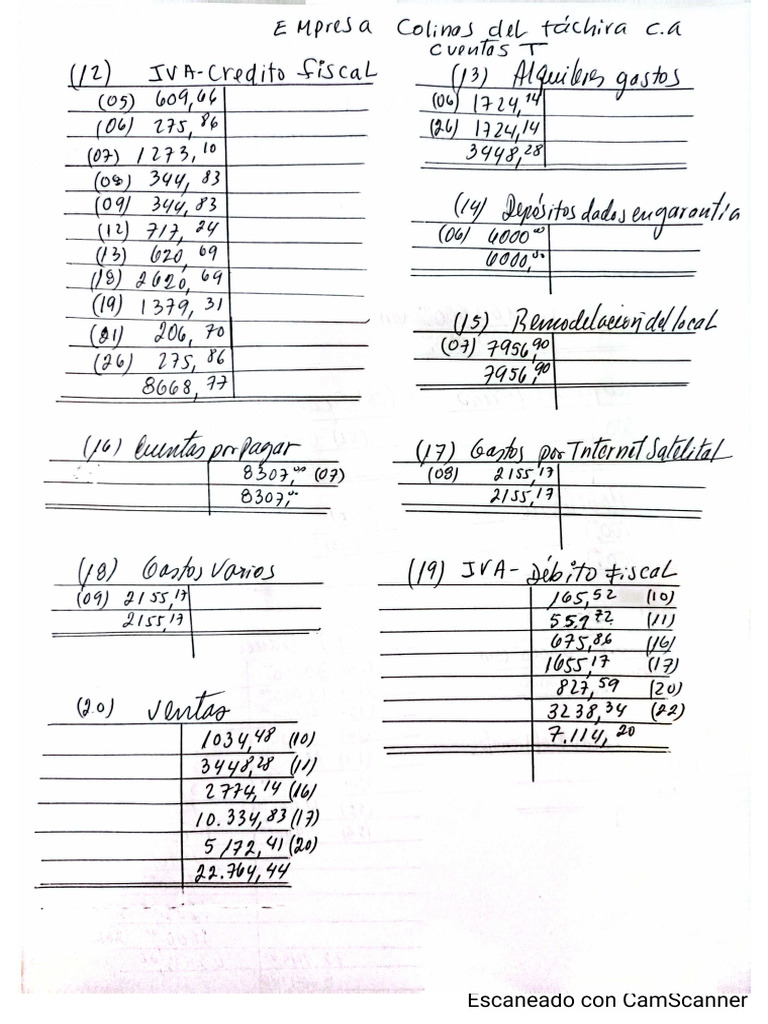 Empresa Colinos del táchira c.a
Cuentas T
(12) IVA-Credito fiscal
(05) 609,66
(06) 275,86
(07) 1273,10
(08) 344,83
(09) 344,83
(12) 717,24
(13) 620,69
(18) 2620,69
(19) 1379,31
(21) 206,70
(26) 275,86
8668,77
(13) Alquileres gastos
(06) 1724,14
(26) 1724,14
3448,28
(14) Depósitos dados en garantía
(06) 6000,00
6000,00
(15) Remodelación del local
(07) 7956,90
7956,90
(16) Cuentas por Pagar
8307,00 (07)
8307,00
(17) Gastos por Internet Satelital
(08) 2155,17
2155,17
(18) Gastos Varios
(09) 2155,17
2155,17
(19) IVA-Débito fiscal
165,52 (10)
551,72 (11)
675,86 (16)
1655,17 (17)
827,59 (20)
3238,34 (22)
7.114,20
(20) Ventas
1034,48 (10)
3448,28 (11)
2774,14 (16)
10.334,83 (17)
5172,41 (20)
22.764,44
Escaneado con CamScanner